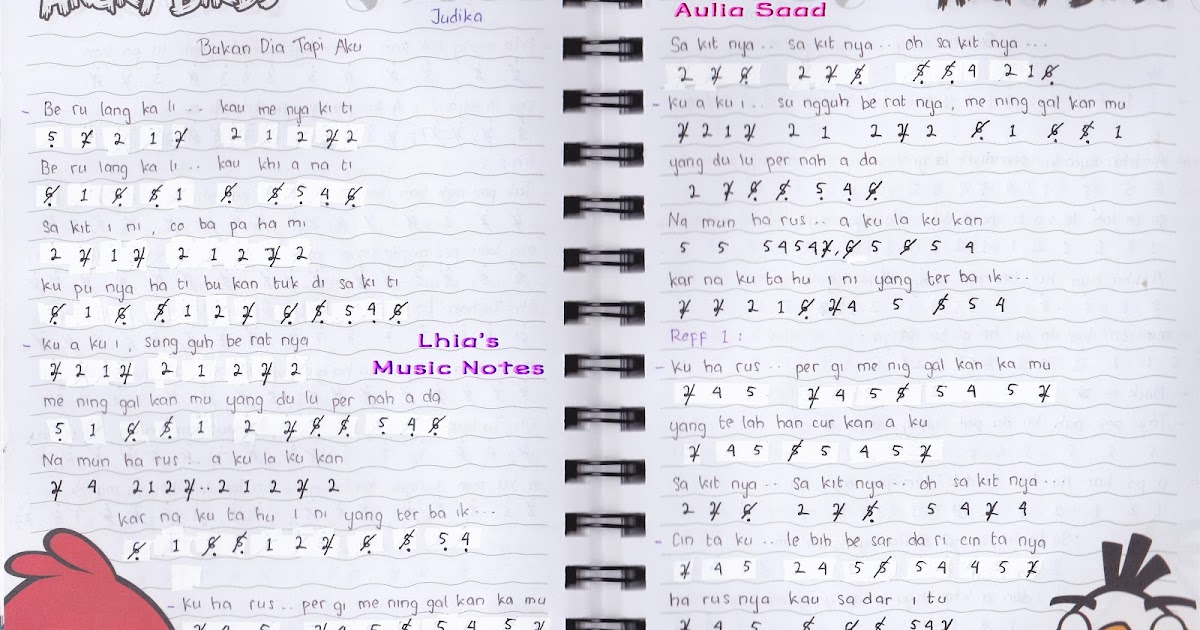 Judika
Bukan Dia Tapi Aku
- Be ru lang ka li ... kau me nya ki ti
5 2̸ 2 1 2̸ 2 1 2 2̸ 2
Be ru lang ka li .. kau khi a na ti
6̸ 1 6̸ 5̸ 1 6̸ 5̸ 5 4 6̸
Sa kit i ni , co ba pa ha mi
2 2̸ 1 2̸ 2 1 2 2̸ 2
ku pu nya ha ti bu kan tuk di sa ki ti
6̸ 1 6̸ 5̸ 1 2 2̸ 6̸ 5̸ 5 4 6̸
- Ku a ku i , Sung guh be rat nya
2̸ 2 1 2̸ 2 1 2 2̸ 2
me ning gal kan mu yang du lu per nah a da
5 1 6̸ 5̸ 1 2 2̸ 6̸ 5̸ 5 4 6̸
Na mun ha rus .. a ku la ku kan
2̸ 4 2 1 2 2̸ .. 2 1 2 2̸ 2
kar na ku ta hu i ni yang ter ba ik ...
6̸ 1 6̸ 5̸ 1 2 2̸ 6̸ 5̸ 5 4
- Ku ha rus .. per gi me ning gal kan ka mu
Lhia's
Music Notes
Aulia Saad
Sa kit nya .. sa kit nya .. oh sa kit nya ...
2 2̸ 6̸ 2 2̸ 5̸ 5̸ 5̸ 4 2 1 6̸
- Ku a ku i .. su ngguh be rat nya , me ning gal kan mu
2̸ 2 1 2̸ 2 1 2 2̸ 2 6̸ 1 6̸ 5̸ 1
yang du lu per nah a da
2 2̸ 6̸ 5̸ 5 4 6̸
Na mun ha rus .. a ku la ku kan
5 5 5 4 5 4 2̸ , 6̸ 5 6̸ 5 4
kar na ku ta hu i ni yang ter ba ik ...
2̸ 2̸ 2 1 6̸ 2̸ 4 5 5̸ 5 4
Reff 1 :
- Ku ha rus .. per gi me nig gal kan ka mu
2̸ 4 5 2̸ 4 5 5̸ 5 4 5 2̸
yang te lah han cur kan a ku
2̸ 4 5 5̸ 5 4 5 2̸
Sa kit nya .. sa kit nya .. oh sa kit nya ...
2 2̸ 6̸ 2 2̸ 5̸ 5 4 2̸ 4
- Cin ta ku .. le bih be sar da ri cin ta nya
2̸ 4 5 2 4 5 5̸ 5 4 4 5 2̸
ha rus nya kau sa dar i tu